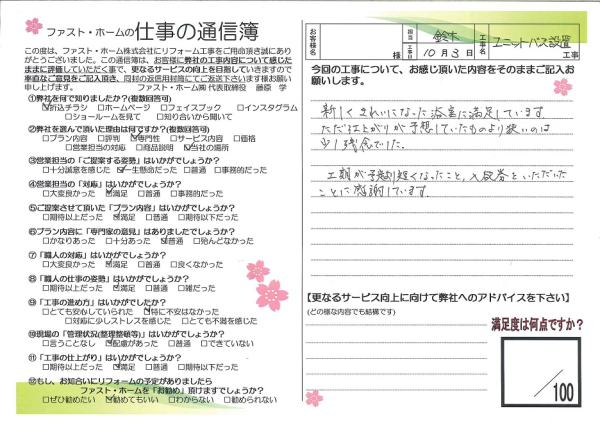 ファスト・ホームの仕事の通信簿
この度は、ファスト・ホーム株式会社にリフォーム工事をご用命頂き誠にあり
がとうございました。この通信簿は、お客様に弊社の工事内容について感じた
ままに評価していただく事で、更なるサービスの向上を目指していきますので
率直なご意見をご記入頂き、同封の返信用封筒にてご送下さいます様お願い
申し上げます。 ファスト・ホーム㈱ 代表取締役 藤原 学
①弊社を何で知りましたか?(複数回答可)
☑折込チラシ □ホームページ □フェイスブック □インスタグラム
□ショールームを見て □知り合いから聞いて
②弊社を選んで頂いた理由は何ですか?(複数回答可)
□プラン内容 □評判 ☑専門性 □サービス内容 □価格
□営業担当の対応 □商品説明 ☑当社の場所
③営業担当の「ご提案する姿勢」はいかがでしょうか?
□十分誠意を感じた ☑一生懸命だった □普通 □事務的だった
④営業担当の「対応」はいかがでしょうか?
□大変良かった ☑満足 □普通 □事務的だった
⑤ご提案させて頂いた「プラン内容」はいかがでしょうか?
□期待以上だった ☑満足 □普通 □期待以下だった
⑥プラン内容に「専門家の意見」はありましたでしょうか?
□かなりあった □十分あった ☑普通 □殆んどなかった
⑦「職人の対応」はいかがでしょうか?
□大変良かった ☑満足 □普通 □良くなかった
⑧「職人の仕事の姿勢」はいかがでしょうか?
□期待以上だった ☑満足 □普通 □雑だった
⑨「工事の進め方」はいかがでしたか?
□とても安心していられた ☑特に不安はなかった
□対応に少しストレスを感じた □とても不満を感じた
⑩現場の「管理状況(整理整頓等)」はいかがでしょうか?
□言うことなし ☑配慮があった □普通 □できていない
⑪「工事の仕上がり」はいかがでしょうか?
□期待以上だった ☑満足 □普通 □期待以下だった
⑫もし、お知合いにリフォームの予定がありましたら
ファスト・ホームを「お勧め」頂けますでしょうか?
□ぜひ勧めたい ☑勧めてもいい □わからない □勧められない
お客様名 様 担当 鈴木 工事日 10月3日 工事名 ユニットバス設置 工事
今回の工事について、お感じ頂いた内容をそのままご記入お
願いします。
新しくきれいになった浴室に満足しています。
ただ仕上がりが予想していたものより狭いのは
少し残念でした。
工期が予定より短くなったこと、入浴券をいただいた
ことに感謝しています。
【更なるサービス向上に向けて弊社へのアドバイスを下さい】
(どの様な内容でも結構です)
満足度は何点ですか?
/100